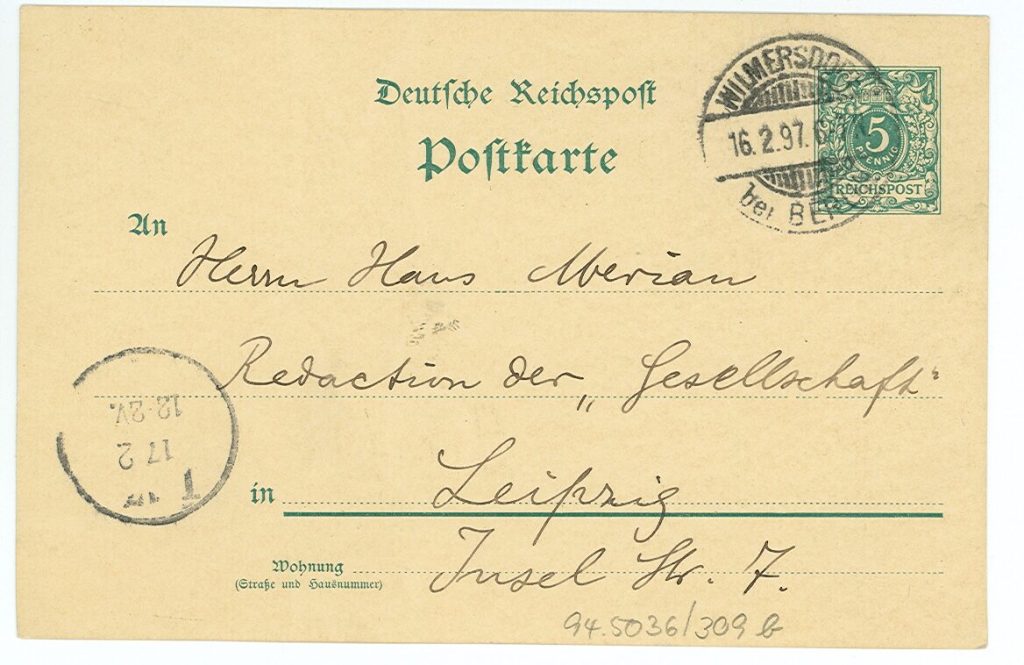 Deutsche Reichspost
Postkarte
WILMERSDORF
16.2.97.
bei BERLIN
5
PFENNIG
REICHSPOST
An
Herrn Hans Merian
Redaction der „Gesellschaft“
in Leipzig
Wohnung Insel Str. 7.
(Straße und Hausnummer)
12-2V.
17 2
1
94.5036/309 b